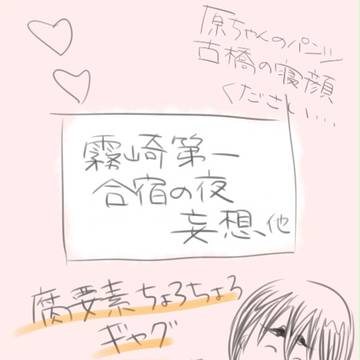 原ちゃんのパンツ
古橋の寝顔
ください…
霧崎第一
合宿の夜
妄想、他
腐要素ちょろちょろ
ギャグ